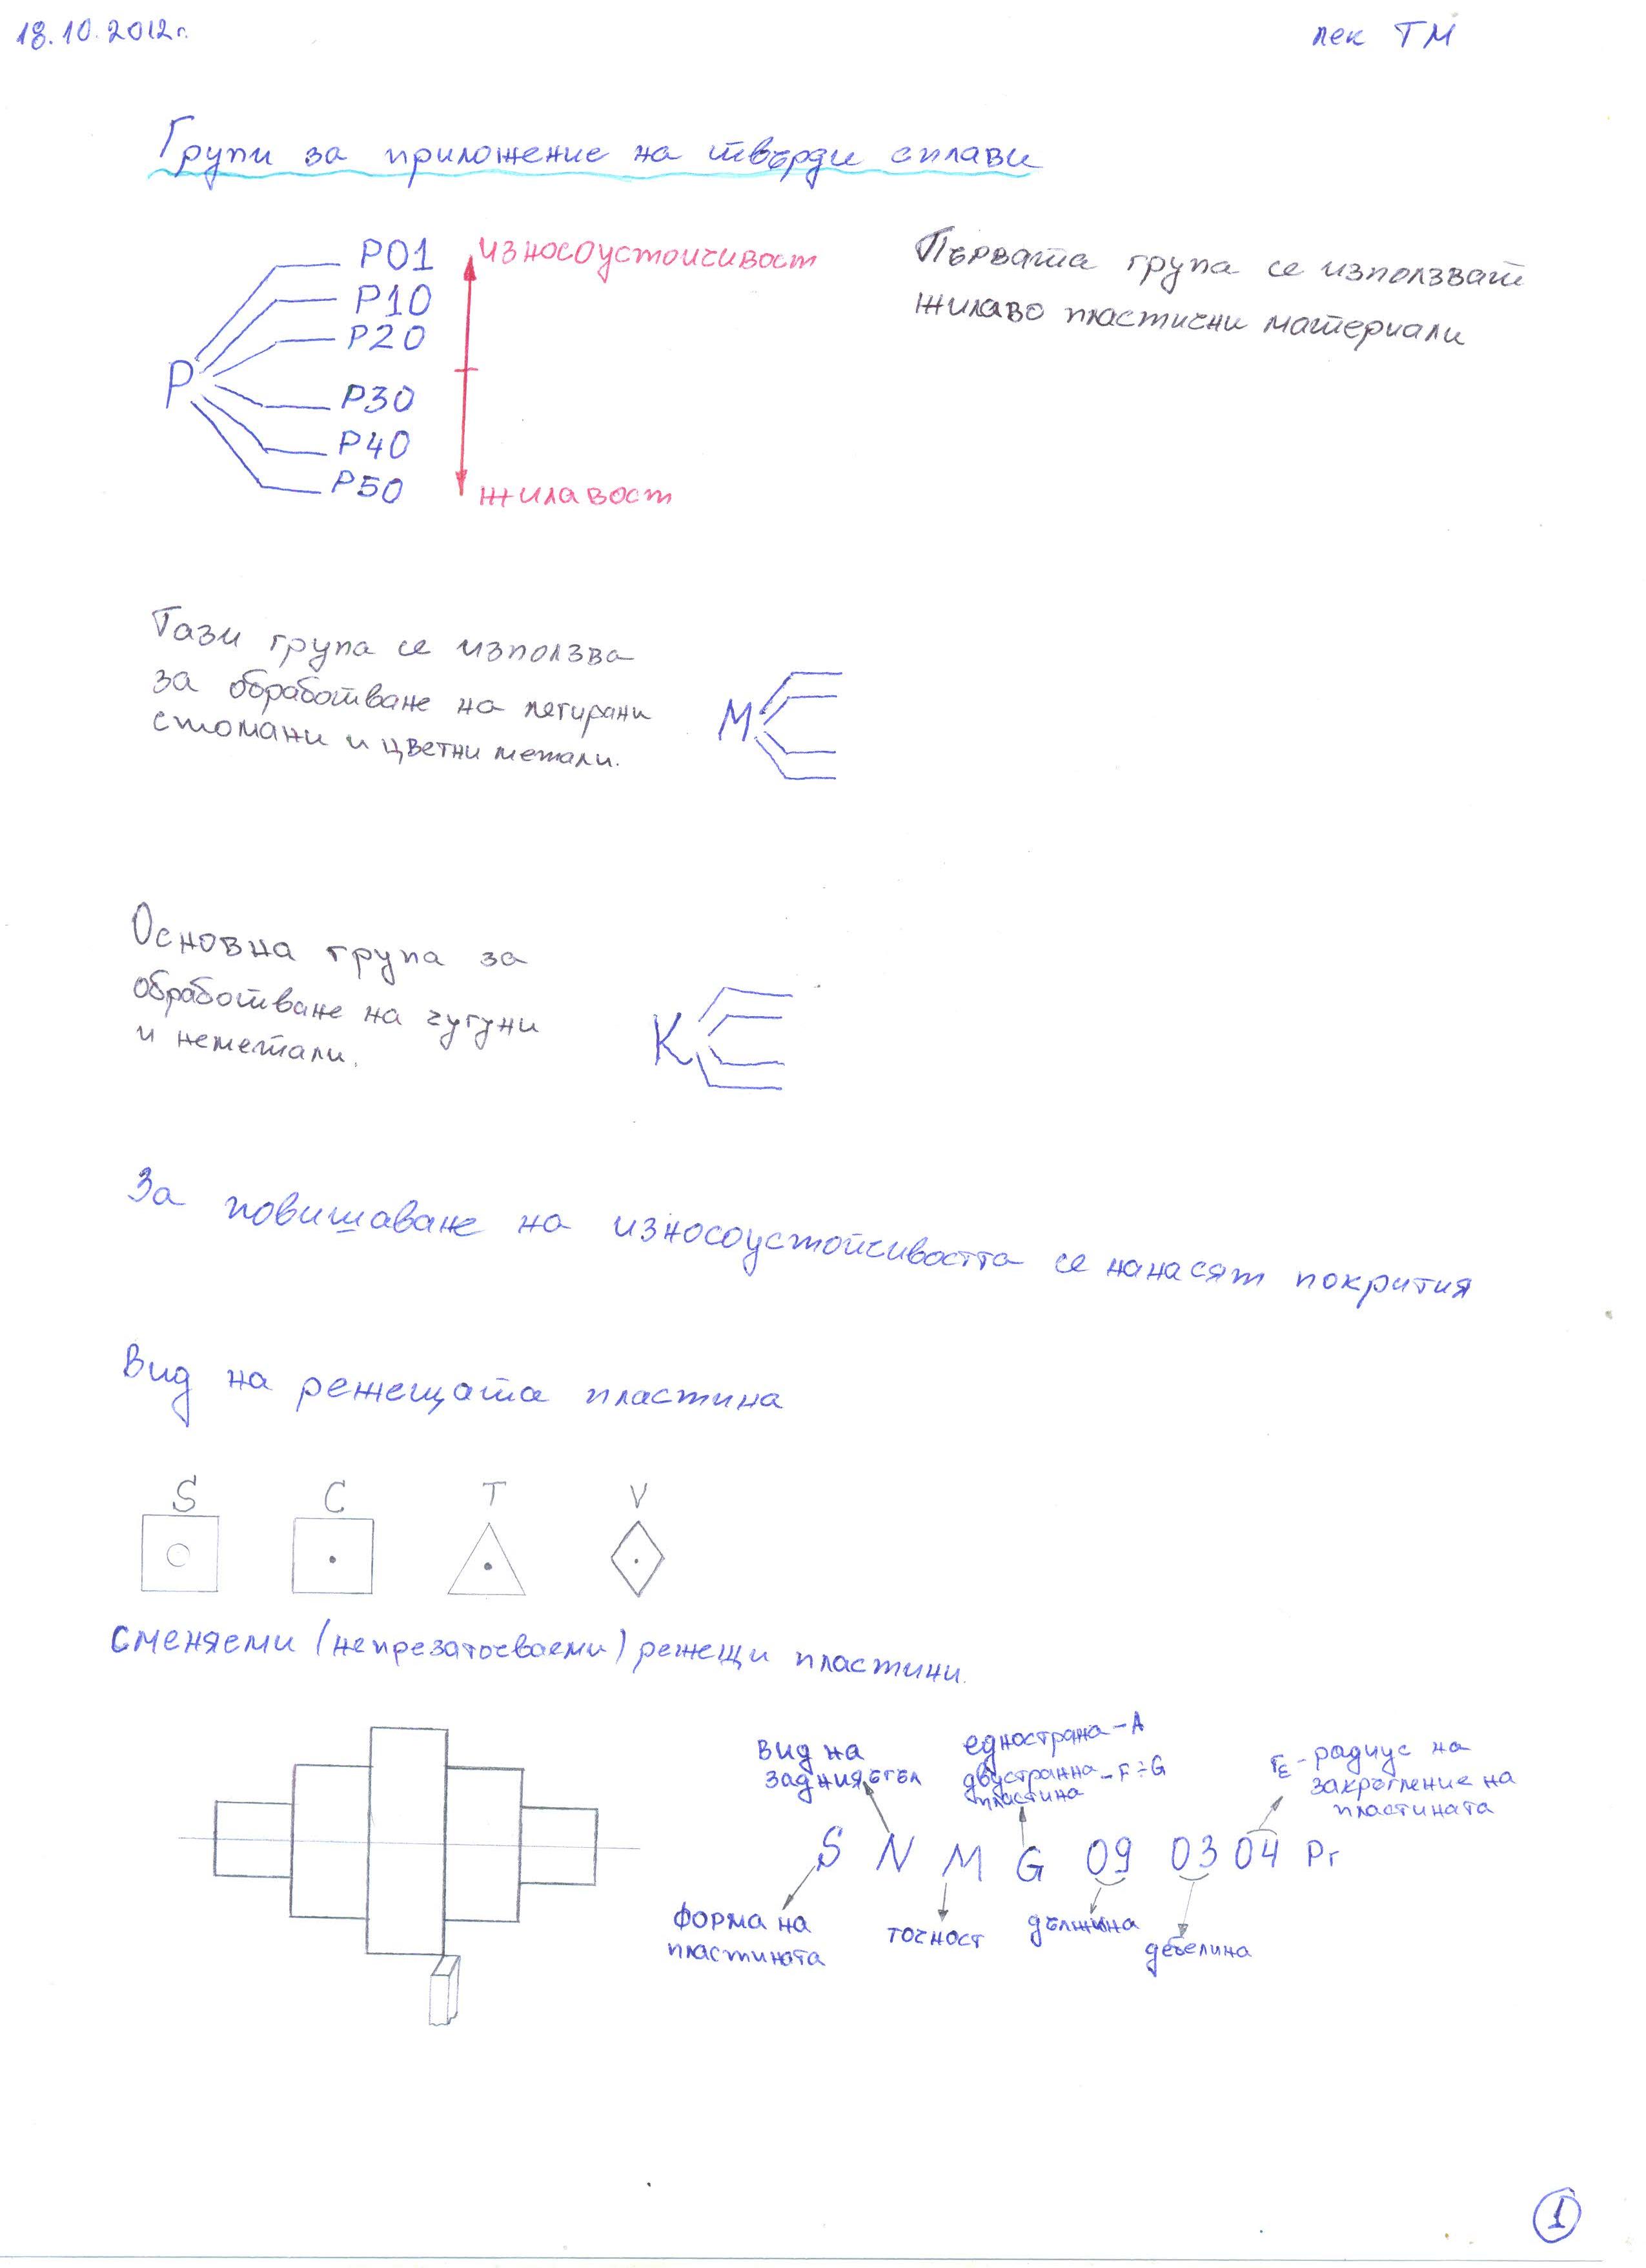 18.10.2012г.
лек ТМ
Групи за приложение на твърди сплави
P01
P10
P20
P
P30
P40
P50
износоустоичивост
жилавост
Първата група се използват
жилаво пластични материали
Тази група се използва
за обработване на легирани
стомани и цветни метали.
М
Основна група за
обработване на чугуни
и неметали.
К
За повишаване на износоустойчивостта се нанасят покрития
Вид на режещата пластина
S C T V
сменяеми (непрезаточваеми) режещи пластини.
вид на
задния ъгъл
еднострана - А
двустранна - F÷G
пластина
rε - радиус на
закръгление на
пластината
S N M G 09 03 04 Pr
форма на
пластината
точност
дължина
дебелина
1